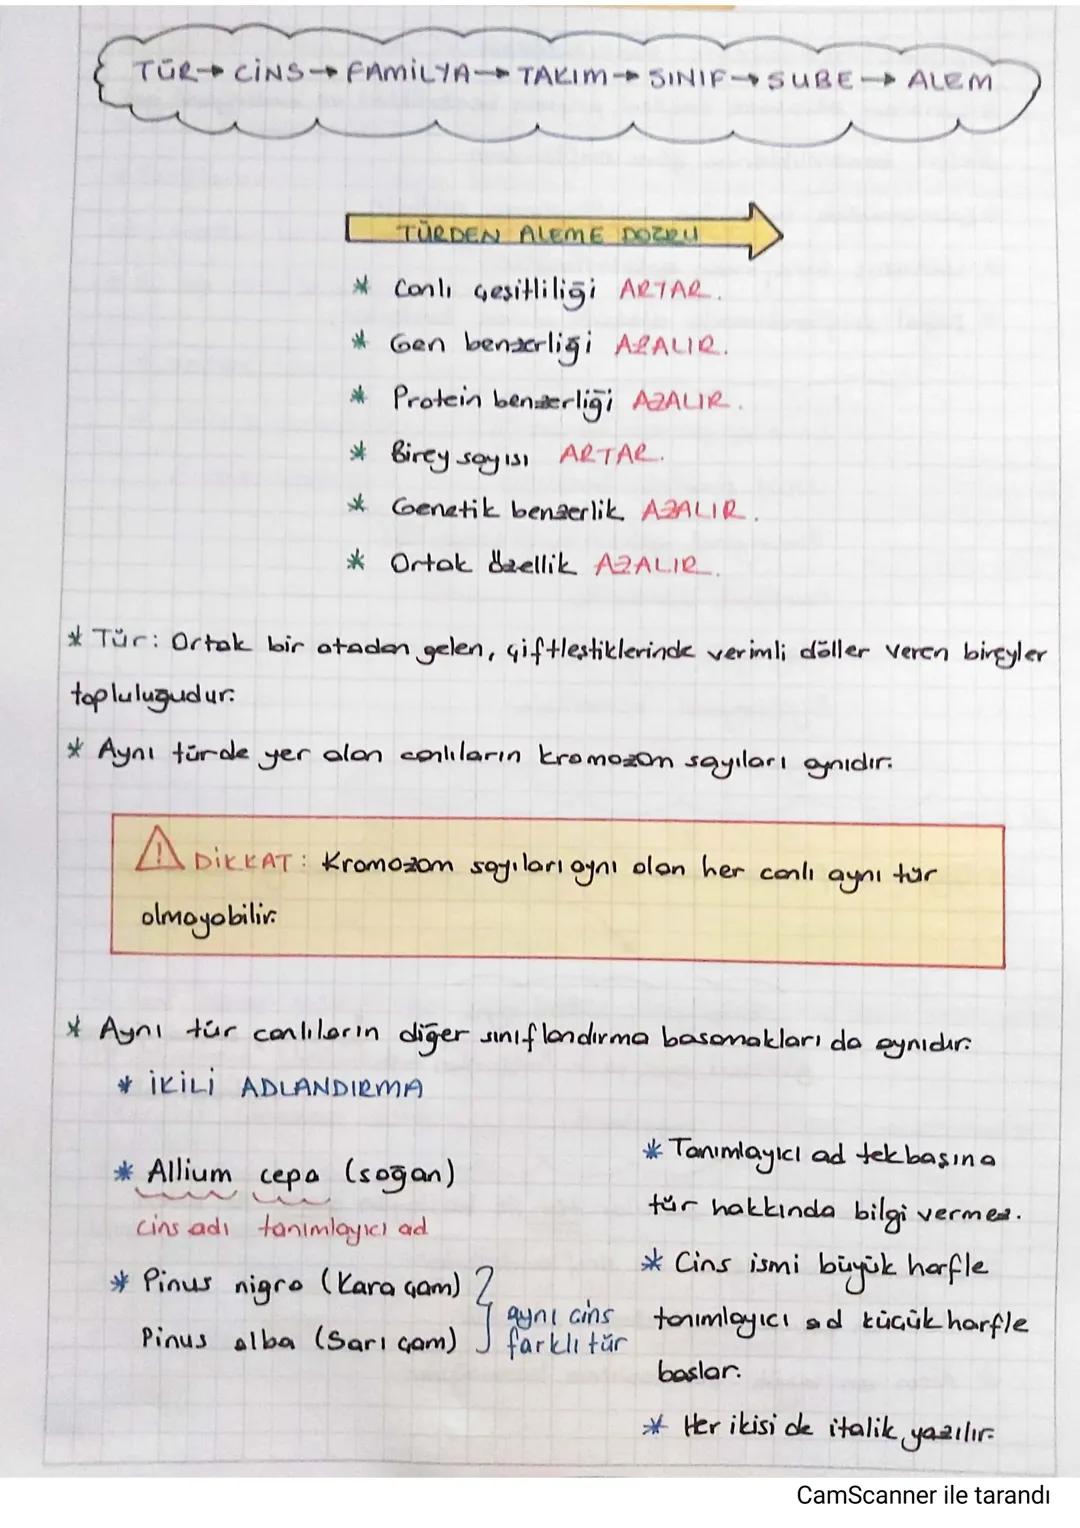 TÜR→ CİNS→ FAMİLYA→ TAKIM→ SINIF→ SUBE→ ALEM
TÜRDEN ALEME DOĞRU
* Canlı çeşitliliği ARTAR.
* Gen benzerliği AZALIR.
* Protein benzerliği AZALIR.
* Birey sayısı ARTAR.
* Genetik benzerlik AZALIR.
* Ortak özellik AZALIR.
* Tür: Ortak bir atadan gelen, çiftleştiklerinde verimli döller veren bireyler
topluluğudur.
* Aynı türde yer alan canlıların kromozom sayıları aynıdır.
⚠ DİKKAT: Kromozom sayıları aynı olan her canlı aynı tür
olmayabilir.
* Aynı tür canlıların diğer sınıflandırma basamakları da aynıdır.
* İKİLİ ADLANDIRMA
* Allium cepa (soğan)
cins adı tanımlayıcı ad
* Pinus nigra (Kara çam)
Pinus alba (Sarı çam)
aynı cins
farklı tür
* Tanımlayıcı ad tek başına
tür hakkında bilgi vermez.
* Cins ismi büyük harfle
tanımlayıcı ad küçük harfle
başlar.
* Her ikisi de italik yazılır.
CamScanner ile tarandı